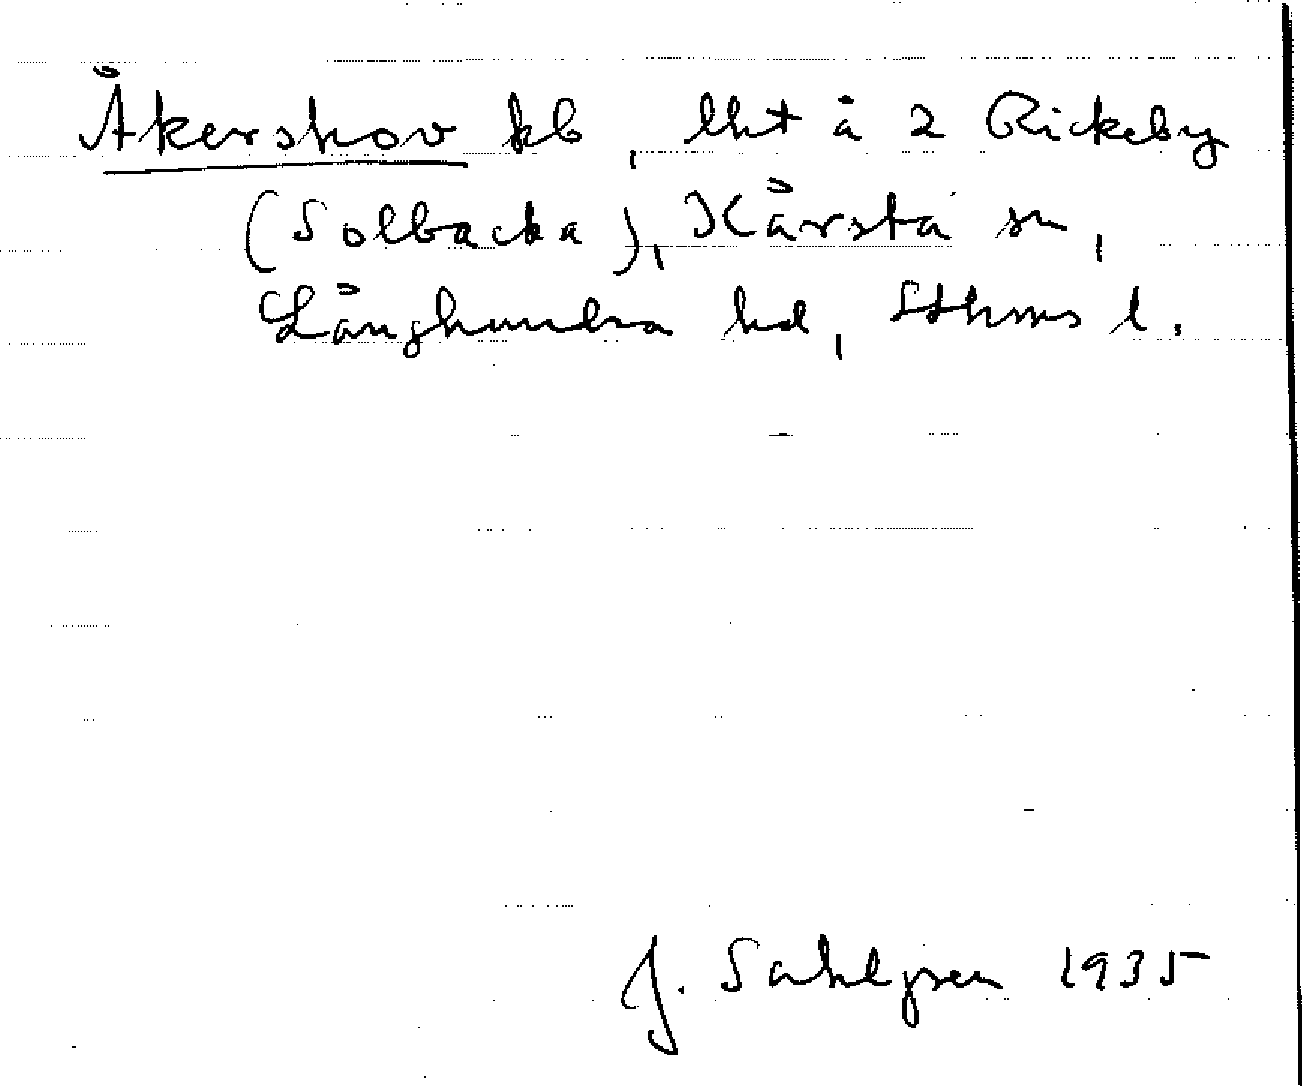 Åkershov kb, lht å 2 Rickeby
(Solbacka), Kårsta sn,
Långhundra hd, Sthms l.
J. Sahlgren 1935